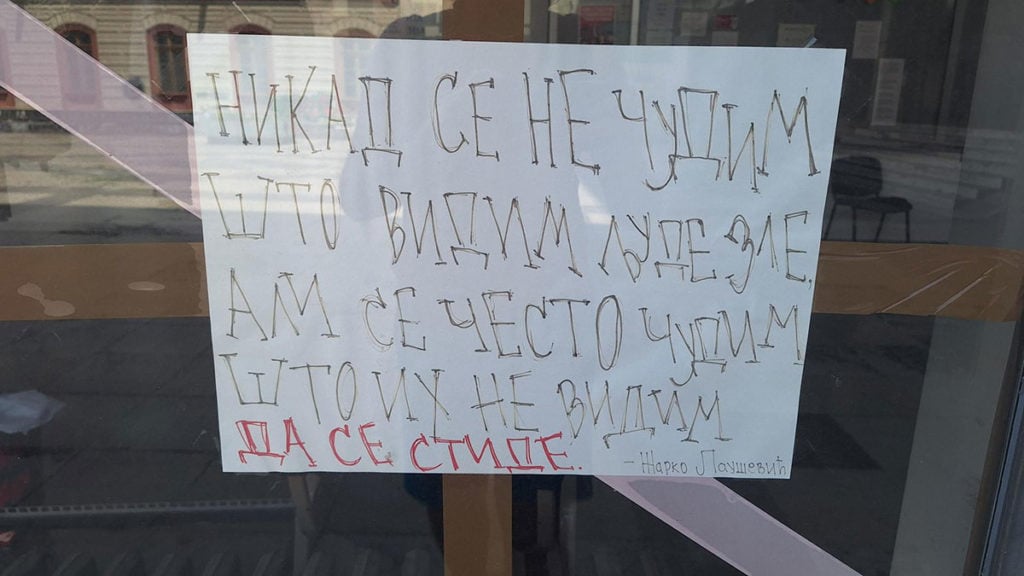 НИКАД СЕ НЕ ЧУДИМ
ШТО ВИДИМ ЉУДЕ ЗЛЕ,
АМ СЕ ЧЕСТО ЧУДИМ
ШТО ИХ НЕ ВИДИМ
ДА СЕ СТИДЕ.
- Жарко Лаушевић